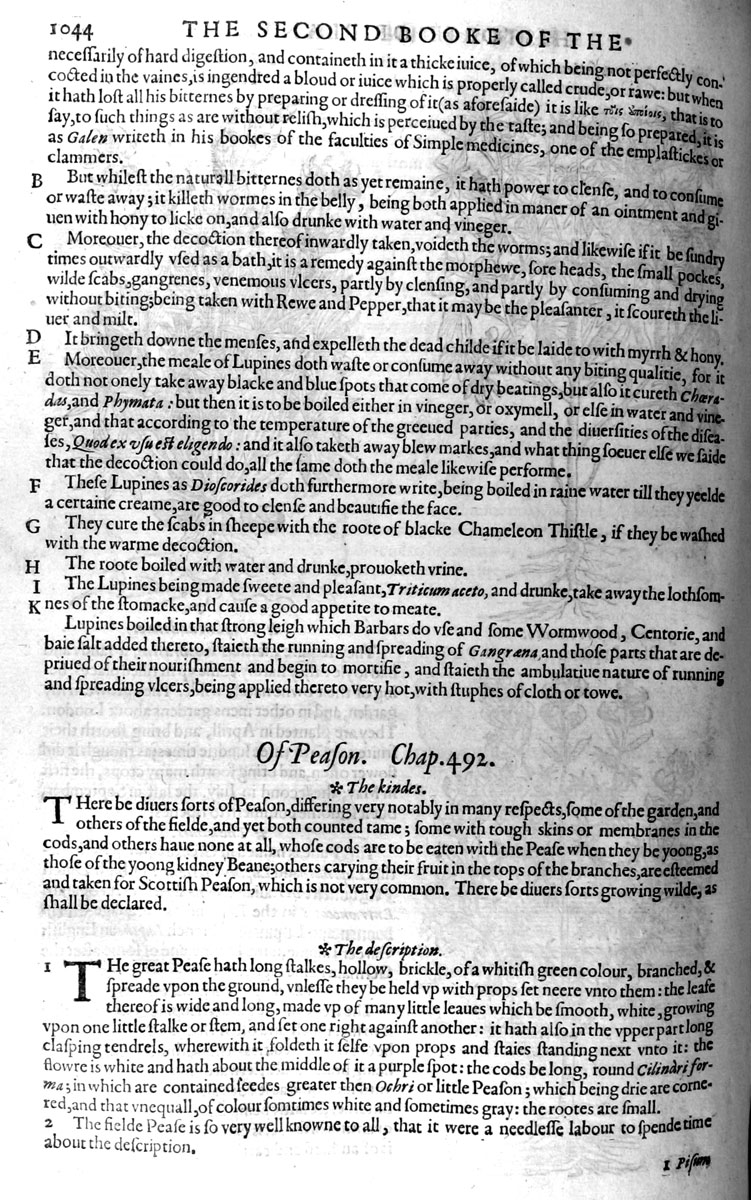 1044 THE SECOND BOOKE OF THE
neceſſarily of hard digeſtion, and containeth in it a thicke iuice, of which being not perfectly con-
cocted in the vaines, is ingendred a bloud or iuice which is properly called crude, or rawe: but when
it hath loſt all his bitternes by preparing or dreſſing of it (as aforeſaide) it is like that is to
ſay, to ſuch things as are without reliſh, which is perceiued by the taſte; and being ſo prepared, it is
as Galen writeth in his bookes of the faculties of Simple medicines, one of the emplaſtickes or
clammers.
B But whileſt the naturall bitternes doth as yet remaine, it hath power to clenſe, and to conſume
or waſte away; it killeth wormes in the belly, being both applied in maner of an ointment and gi-
uen with hony to licke on, and alſo drunke with water and vineger.
C Moreouer, the decoction thereof inwardly taken, voideth the worms; and likewiſe if it be ſundry
times outwardly vſed as a bath, it is a remedy againſt the morphewe, ſore heads, the ſmall pockes,
wilde ſcabs, gangrenes, venemous vlcers, partly by clenſing, and partly by conſuming and drying
without biting; being taken with Rewe and Pepper, that it may be the pleaſanter, it ſcoureth the li-
uer and milt.
D It bringeth downe the menſes, and expelleth the dead childe if it be laide to with myrrh & hony.
E Moreouer, the meale of Lupines doth waſte or conſume away without any biting qualitie, for it
doth not onely take away blacke and blue ſpots that come of dry beatings, but alſo it cureth Chœra-
das, and Phymata: but then it is to be boiled either in vineger, or oxymell, or elſe in water and vine-
ger, and that according to the temperature of the greeued parties, and the diuerſities of the diſea-
ſes, Quod ex vſu eſt eligendo: and it alſo taketh away blew markes, and what thing ſoeuer elſe we ſaide
that the decoction could do, all the ſame doth the meale likewiſe performe.
F Theſe Lupines as Dioſcorides doth furthermore write, being boiled in raine water till they yeelde
a certaine creame, are good to clenſe and beautifie the face.
G They cure the ſcabs in ſheepe with the roote of blacke Chameleon Thiſtle, if they be waſhed
with the warme decoction.
H The roote boiled with water and drunke, prouoketh vrine.
I The Lupines being made ſweete and pleaſant, Triticum aceto, and drunke, take away the lothſom-
K nes of the ſtomacke, and cauſe a good appetite to meate.
Lupines boiled in that ſtrong leigh which Barbars do vſe and ſome Wormwood, Centorie, and
baie ſalt added thereto, ſtaieth the running and ſpreading of Gangræna, and thoſe parts that are de-
priued of their nouriſhment and begin to mortifie, and ſtaieth the ambulatiue nature of running
and ſpreading vlcers, being applied thereto very hot, with ſtuphes of cloth or towe.
Of Peaſon. Chap. 492.
❉ The kindes.
THere be diuers ſorts of Peaſon, differing very notably in many reſpects, ſome of the garden, and
others of the fielde, and yet both counted tame; ſome with tough skins or membranes in the
cods, and others haue none at all, whoſe cods are to be eaten with the Peaſe when they be yoong, as
thoſe of the yoong kidney Beane; others carying their fruit in the tops of the branches, are eſteemed
and taken for Scottiſh Peaſon, which is not very common. There be diuers ſorts growing wilde, as
ſhall be declared.
❉ The deſcription.
1 THe great Peaſe hath long ſtalkes, hollow, brickle, of a whitiſh green colour, branched, &
ſpreade vpon the ground, vnleſſe they be held vp with props ſet neere vnto them: the leafe
thereof is wide and long, made vp of many little leaues which be ſmooth, white, growing
vpon one little ſtalke or ſtem, and ſet one right againſt another: it hath alſo in the vpper part long
claſping tendrels, wherewith it foldeth it ſelfe vpon props and ſtaies ſtanding next vnto it: the
flowre is white and hath about the middle of it a purple ſpot: the cods be long, round Cilindri for-
ma; in which are contained ſeedes greater then Ochri or little Peaſon; which being drie are corne-
red, and that vnequall, of colour ſomtimes white and ſometimes gray: the rootes are ſmall.
2 The fielde Peaſe is ſo very well knowne to all, that it were a needleſſe labour to ſpende time
about the deſcription.
1 Piſum